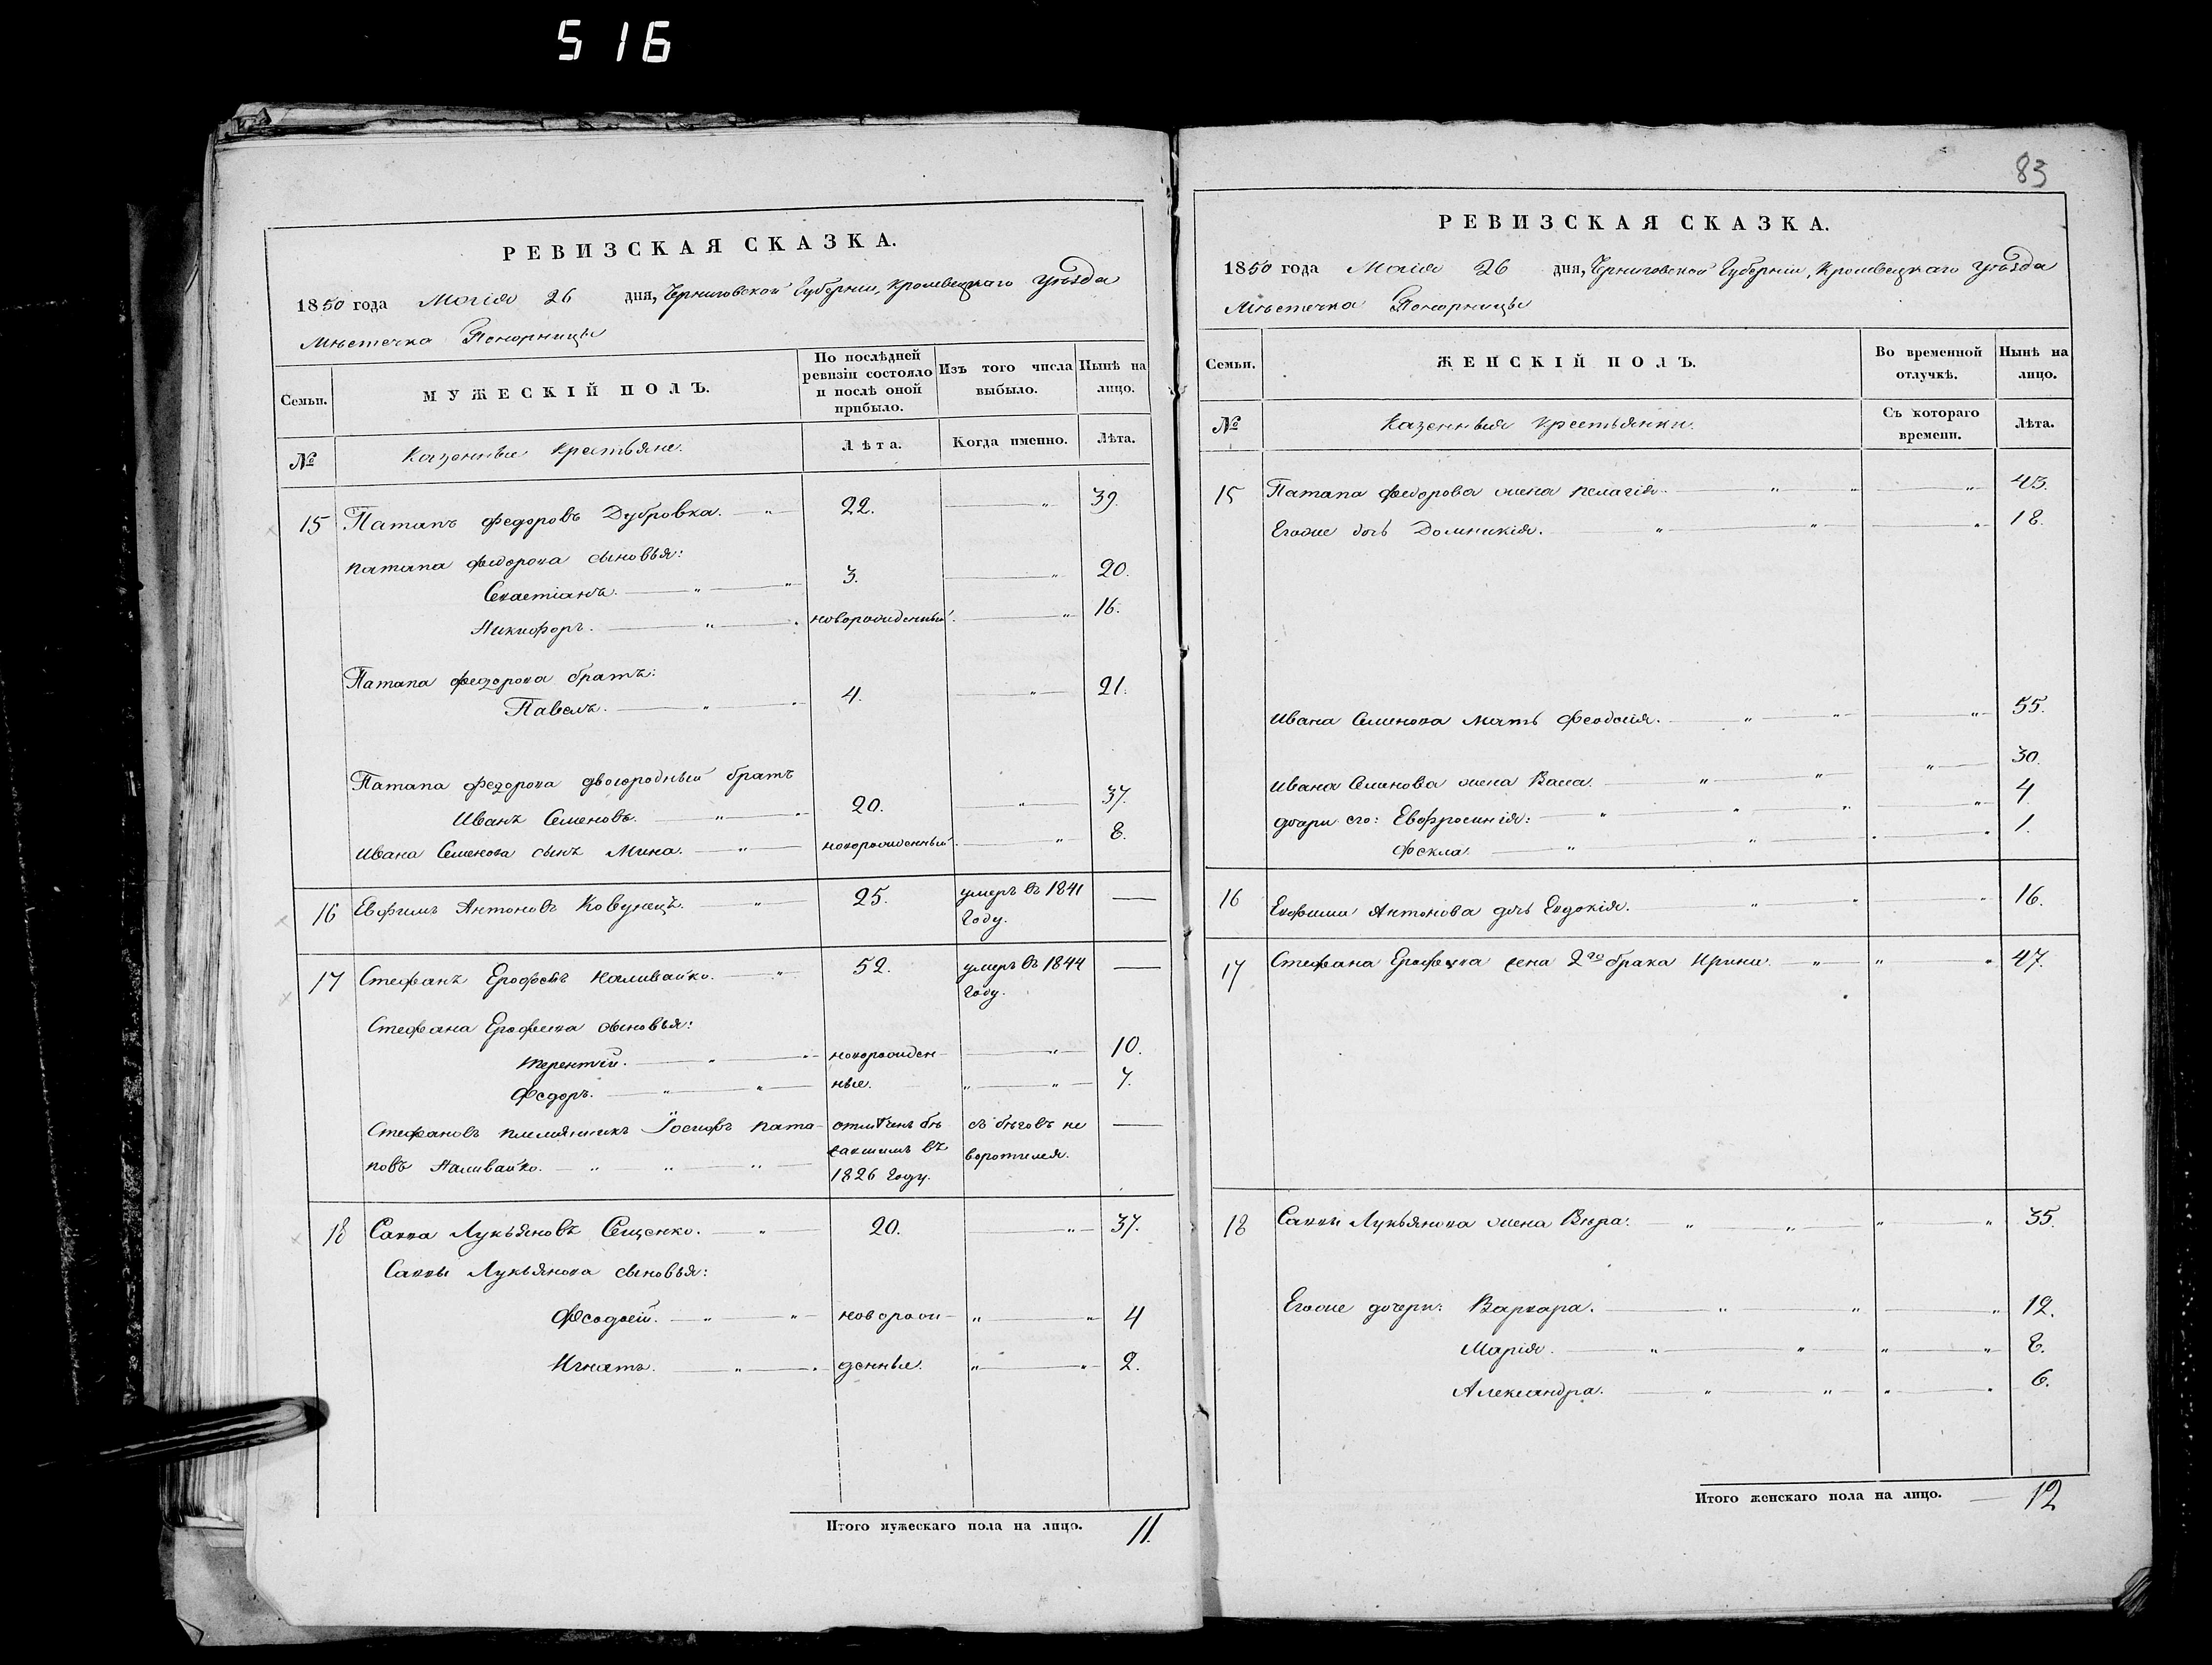 516
РЕВИЗСКАЯ СКАЗКА.
1850 года Маія 26 дня, Черниговской Губерніи, Кролевецкаго Уѣзда
Мѣстечка Понорницы
Семьи.
МУЖЕСКІЙ ПОЛЪ.
По послѣдней ревизіи состояло и послѣ оной прибыло.
Изъ того числа выбыло.
Нынѣ на лицо.
№
Казенные Крестьяне.
Лѣта.
Когда именно.
Лѣта.
15 Патапъ Федоровъ Дубровка. 22. 39.
Патапа Федорова сыновья:
Севастіанъ. 3. 20.
Никифоръ. новорожденный. 16.
Патапа Федорова братъ:
Павелъ. 4. 21.
Патапа Федорова двоюродный братъ
Иванъ Семеновъ. 20. 37.
Ивана Семенова сынъ Мина. новорожденный. 8.
16 Евфимъ Антоновъ Ковунецъ. 25. умеръ въ 1841 —
году.
17 Стефанъ Ерофеевъ Наливайко. 52. умеръ въ 1844 —
году.
Стефана Ерофеева сыновья:
Терентій. новорожден- 10.
Федоръ. ные. 7.
Стефановъ племянникъ Іосифъ Пата- отмѣченъ бѣ съ бѣговъ не —
повъ Наливайко. жавшимъ въ воротился.
1826 году.
18 Савва Лукьяновъ Сещенко. 20. 37.
Саввы Лукьянова сыновья:
Феодосій. новорож- 4
Игнатъ. денные. 2.
Итого мужескаго пола на лицо. 11.
83
РЕВИЗСКАЯ СКАЗКА.
1850 года Маія 26 дня, Черниговской Губерніи, Кролевецкаго Уѣзда
Мѣстечка Понорницы
Семьи.
ЖЕНСКІЙ ПОЛЪ.
Во временной отлучкѣ.
Нынѣ на лицо.
№
Казенныя Крестьянки.
Съ котораго времени.
Лѣта.
15 Патапа Федорова жена Пелагія. 43.
Егоже дочь Домникія. 18.
Ивана Семенова мать Феодосія. 55.
Ивана Семенова жена Васса. 30.
дочери его: Евфросинія: 4.
Фекла. 1.
16 Евфима Антонова дочь Евдокія. 16.
17 Стефана Ерофеева жена 2го брака Ирина. 47.
18 Саввы Лукьянова жена Вѣра. 35.
Егоже дочери: Варвара. 12.
Марія. 8.
Александра. 6.
Итого женскаго пола на лицо. — 12